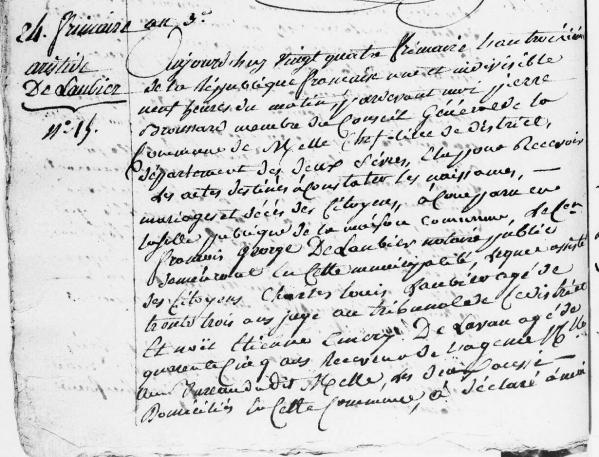 24. frimaire an 3.e
aristide
De Laubier
n.o 15.
Aujourd'huy vingt quatre frimaire l'an troisieme
de la République française une et indivisible
neuf heures du matin, pardevant moi pierre
membre du Conseil Général de la
Commune de Melle Chef-lieu de District,
département des deux Sèvres, Elu pour Recevoir
Les actes destinés à Constater les naissances,
mariages et décés des Citoyens, a Comparu en
la salle publique de la maison Commune, le C.en
françois George De Laubier notaire public
demeurant En Cette municipalité, Lequel assisté
des Citoyens Charles Louis agé de
trente trois ans juge au tribunal de Ce district
Et noël Etienne De Lavau agé de
quarante Cinq ans Receveur de l'agence N.ale
au Bureau du dit Melle, les deux aussi
Domiciliés En Cette Commune, a déclaré à moi